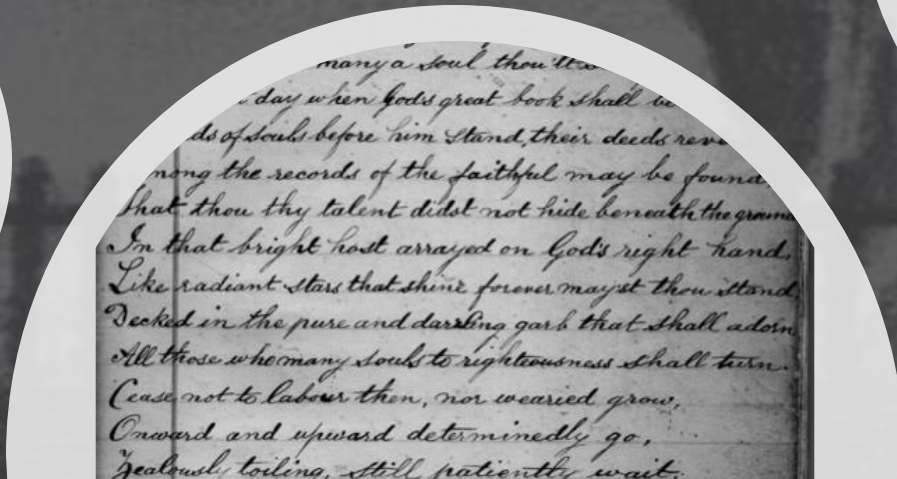 many a soul thou'lt
day when God's great book shall be
of souls before him stand, their deeds
the records of the faithful may be found
That thou thy talent didst not hide beneath the ground
In that bright host arrayed on God's right hand,
Like radiant stars that shine forever mayst thou stand,
Decked in the pure and dazzling garb that shall adorn
All those who many souls to righteousness shall turn.
Cease not to labour then, nor wearied grow,
Onward and upward determinedly go,
Zealously toiling, still patiently wait.